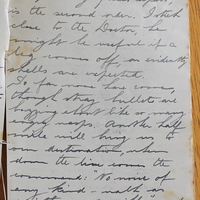 is the second aider. I stick
close to the Doctor, he
might be useful if a
dig comes off, as evidently
shells are expected.
So far none have come,
though stray bullets are
zipping about like so many
angry wasps. Another half
mile will bring us to
our destination, when
down the line comes the
command: "No noise of
any kind – walk as